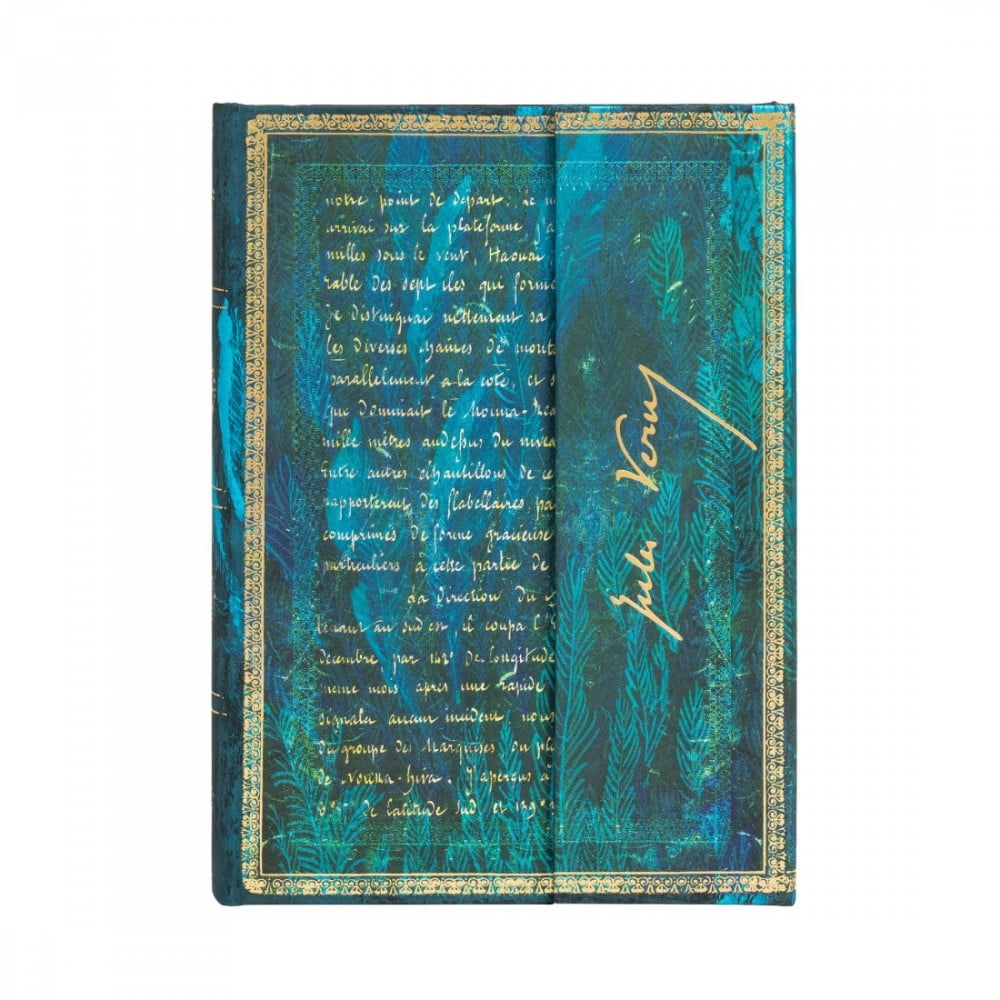 notre point de départ. Le m
arrivai sur la plateforme j'a
milles sous le vent, Haouai
rable des sept iles qui forme
Je distinguai nettement sa
les diverses chaines de monts
parallelement a la cote, et s
que dominait le Mouna-Rea
mille mètres audessus du nivea
Entre autres échantillons de ce
rapporterent des flabellaires pa
comprimés de forme gracieuse
particuliers à cette partie de
La direction du
tenant au sud est, il coupa l'
décembre, par 142° de longitude
meme mois apres une rapide
signala aucun incident, nous
du groupe des Marquises du pl
de Nouka-hiva. J'aperçus à
8° 5' de latitude sud et 139°
Jules Verne